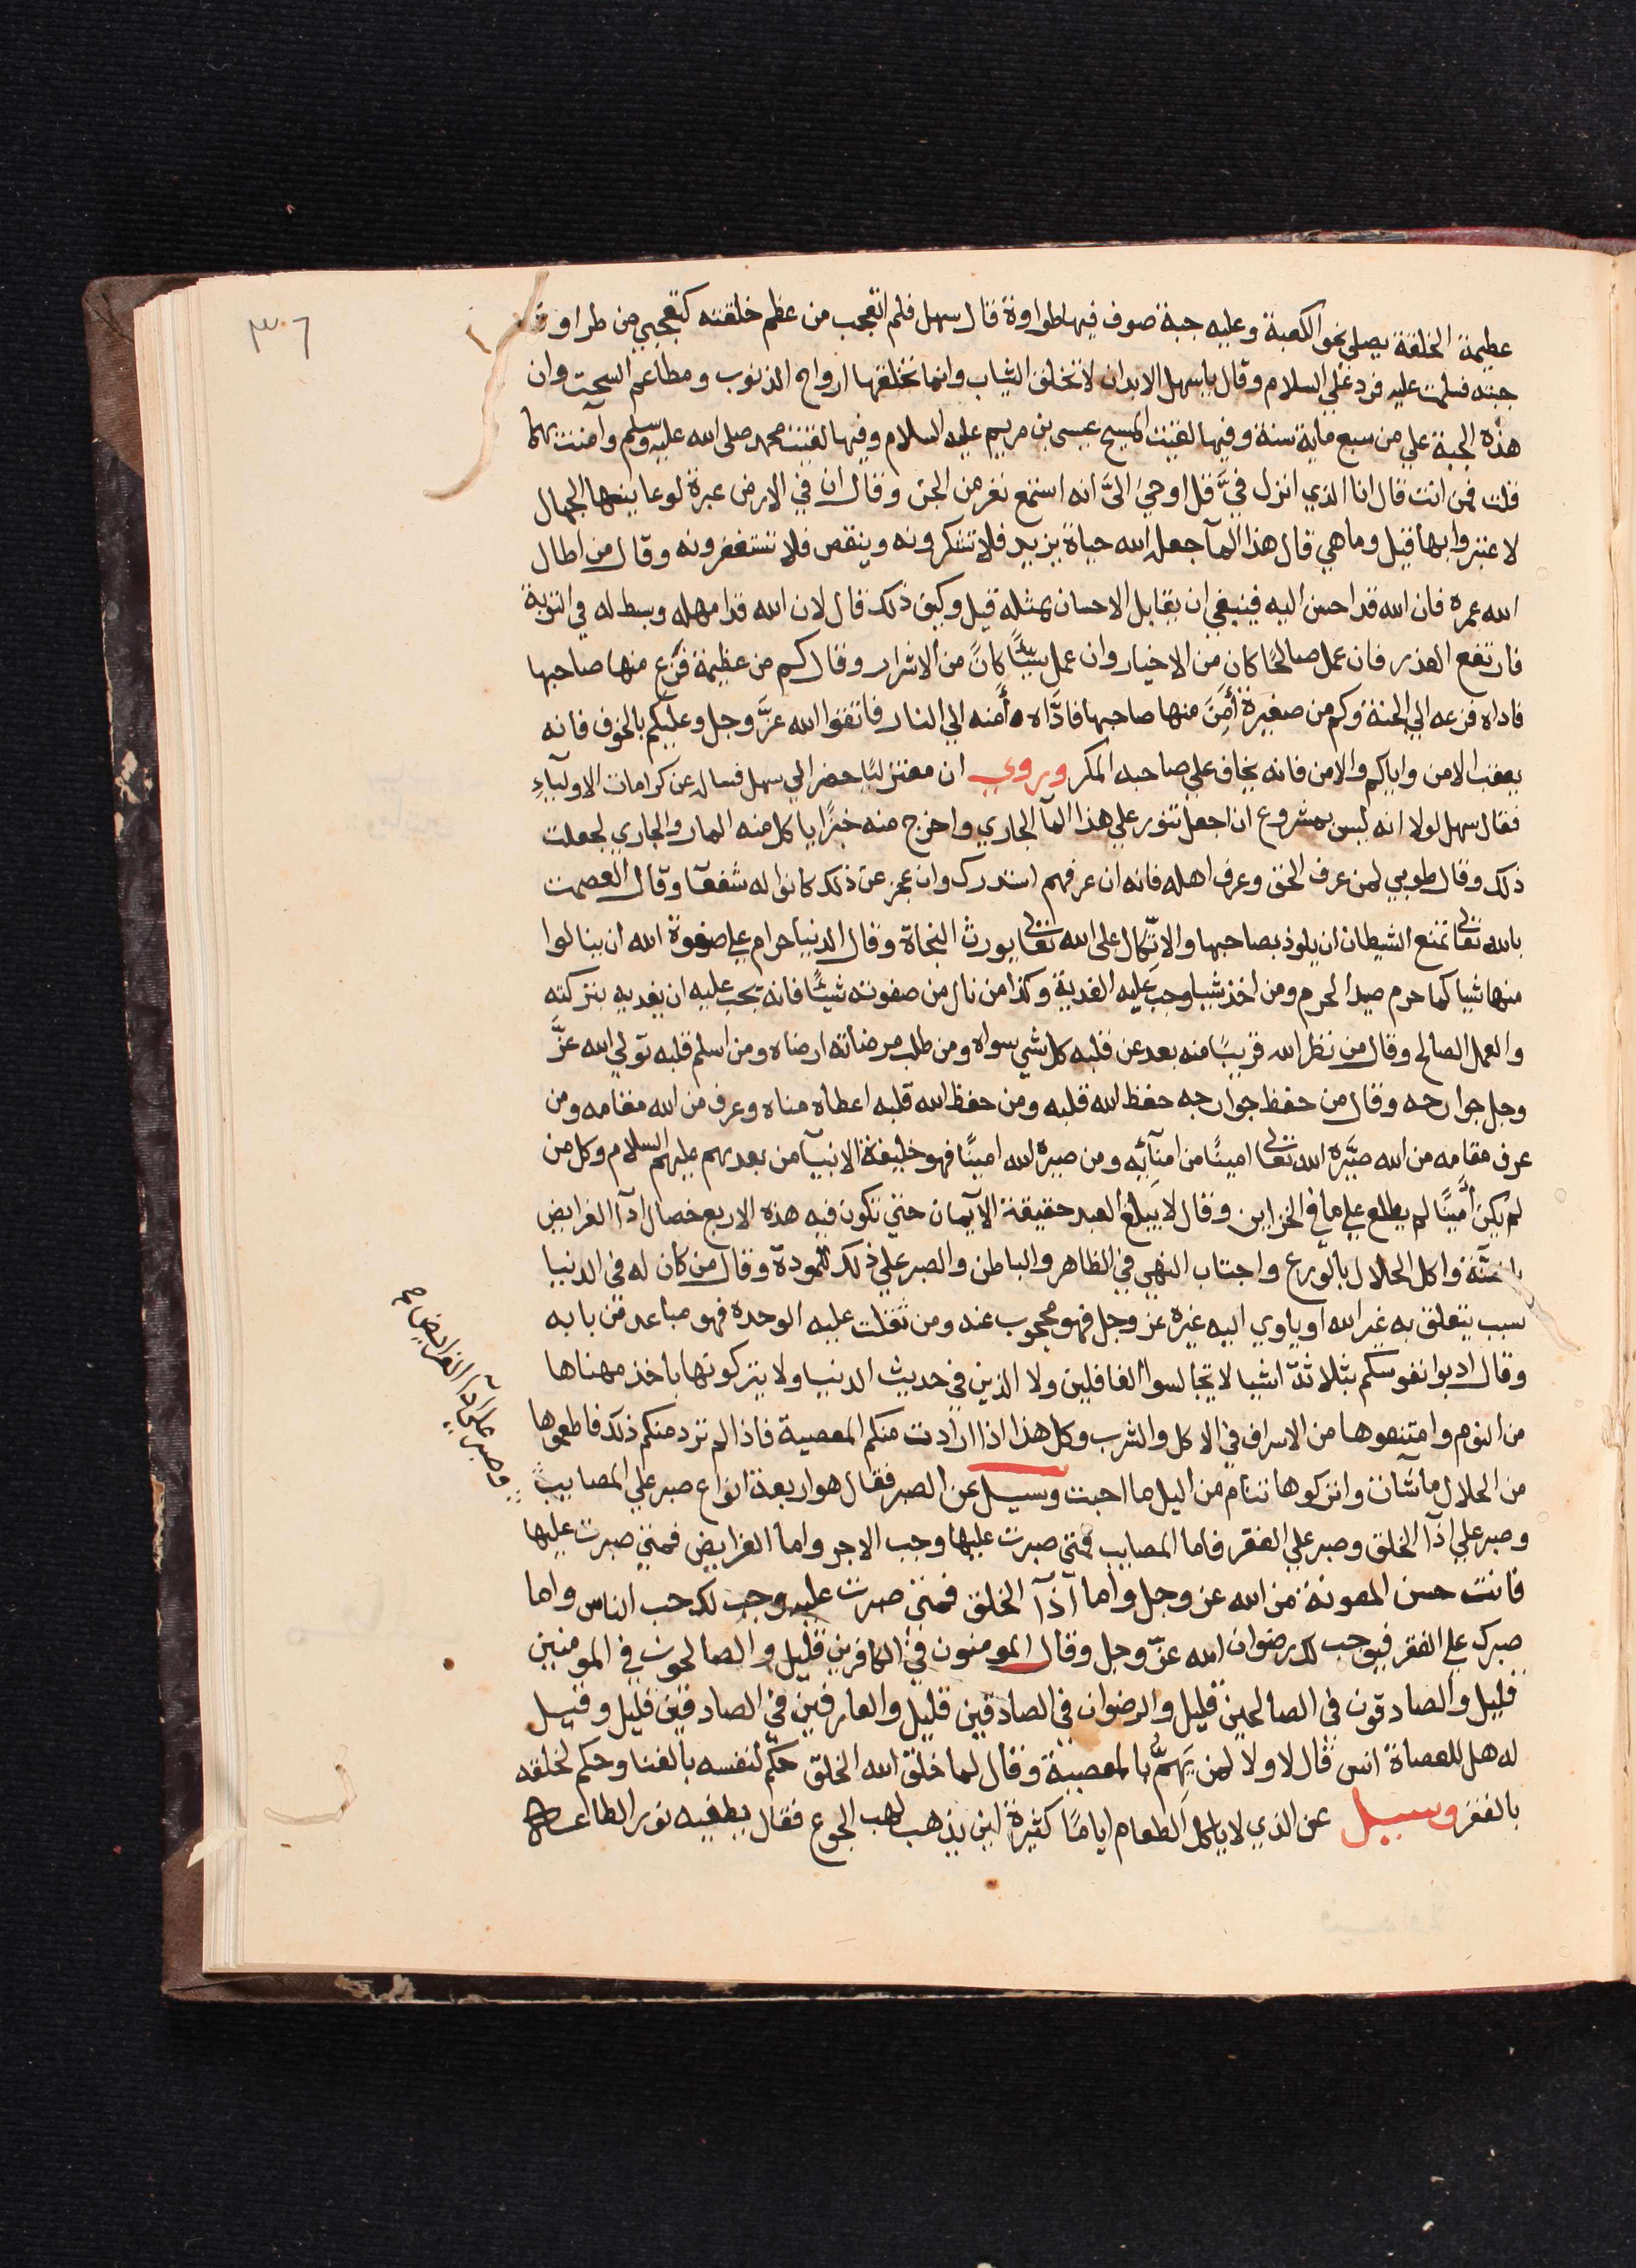 ٣٦
عظيمة الخلقة يصلي نحو الكعبة وعليه جبة صوف فيها طراوة قال سهل فلم اتعجب من عظم خلقته كتعجبي من طراوة
جبته فسلمت عليه فرد علي السلام وقال يا سهل الابدان لا تخلق الثياب وانما تخلقها ارواح الذنوب ومطاعم السحت وان
هذه الجبة علي من سبع ماية سنة وفيها لقيت المسيح عيسى بن مريم عليه السلام وفيها لقيت محمد صلى الله عليه وسلم وآمنت بهما
قلت فمن انت قال انا الذي انزل فيَّ قل اوحيَ الىَّ انه استمع نفر من الجن وقال ان في الارض عبرة لو عاينها الجهال
لاعتبروا بها قيل وما هي قال هذا المآ جعل الله حياة يزيد فلا تشكرونه وينقص فلا تستغفرونه وقال من اطال
الله عمره فان الله قد احسن اليه فينبغي ان يقابل الاحسان بمثله قيل وكيف ذلك قال لان الله قد امهله وبسط له في التوبة
فارتفع العذر فان عمل صالحًا كان من الاخيار وان عمل سيئًا كان من الاشرار وقال كم من عظيمة فزع منها صاحبها
فاداه فزعه الي الجنة وكم من صغيرة أَمِنَ منها صاحبها فادَّاه أمنه الي النار فاتقوا الله عزَّ وجل وعليكم بالخوف فانه
يعقب الامن واياكم والامن فانه يخاف علي صاحبه المكر وروي ان معتزليًا حضر الي سهل فسال عن كرامات الاوليآءِ
فقال سهل لولا انه ليس بمشروع ان اجعل تنور علي هذا المآ الجاري واخرج منه خبزًا ياكل منه المار والجاري لجعلت
ذلك وقال طوبي لمن عرف الحق وعرف اهله فانه ان عرفهم استدرك وان عجز عن ذلك كانوا له شفعآ وقال العصمت
بالله تعالى تمنع الشيطان ان يلوذ بصاحبها والاتّكال على الله تعالى يورث النجاة وقال الدنيا حرام علي صفوة الله ان ينالوا
منها شيا كما حرم صيد الحرم ومن اخذ شيا وجب عليه الفدية وكذا من نال من صفوته شيئًا فانه يجب عليه ان يفديه بتركته
والعمل الصالح وقال من نظر الله قريبًا منه بعد عن قلبه كل شي سواه ومن طلب مرضاته ارضاه ومن اسلم قلبه تولي الله عزَّ
وجل جوارحه وقال من حفظ جوارحه حفظ الله قلبه ومن حفظ الله قلبه اعطاه مناه وعرف من الله مقامه ومن
عرف مقامه من الله صيَّره الله تعالى امينًا من امنآئه ومن صيره الله امينًا فهو خليفة الانبيآ من بعدهم عليهم السلام وكل من
لم يكن أمينًا لم يطلع علي ما في الخزاين وقال لا يبلغ العبد حقيقة الايمان حتي تكون فيه هذه الاربع خصال ادآ الفرايض
بالسنة واكل الحلال بالورع واجتناب النهي في الظاهر والباطن والصبر علي ذلك للمودة وقال من كان له في الدنيا
سبب يتعلق به غير الله او ياوي اليه غيره عز وجل فهو محجوب عنه ومن ثقلت عليه الوحدة فهو مباعد من بابه
وقال ادبوا نفوسكم بثلاثة اشيا لا تجالسوا الغافلين ولا الذين في حديث الدنيا ولا يتركونها باخذ مهناها
من النوم وامتنعوها من الاسراف في الاكل والشرب وكل هذا اذا ارادت منكم المعصية فاذا لم ترد منكم ذلك فاطعموها
من الحلال ما شآت واتركوها تنام من اليل ما احبت وسيل عن الصبر فقال هو اربعة انواع صبر علي المصايب
وصبر علي ادآ الفرايض صح
وصبر علي اذآ الخلق وصبر علي الفقر فاما المصايب فمتي صبرت عليها وجب الاجر واما الفرايض فمتي صبرت عليها
فانت حسن المعونة من الله عز وجل واما آذآ الخلق فمتي صبرت عليه وجب لك حب الناس واما
صبرك علي الفقر فيوجب لك رضوان الله عزّ وجل وقال المومنون في الكافرين قليل والصالحون في المومنين
قليل والصادقون في الصالحين قليل والرضوان في الصادقين قليل والعارفين في الصادقين قليل وقيل
له هل للعصاة انس قال لا ولا لمن يَهمُّ بالمعصية وقال لما خلق الله الخلق حكم لنفسه بالغنا وحكم لخلقه
بالفقر وسيل عن الذي لا ياكل الطعام ايامًا كثيرة اين يذهب لهب الجوع فقال يطفيه نور الطاعة